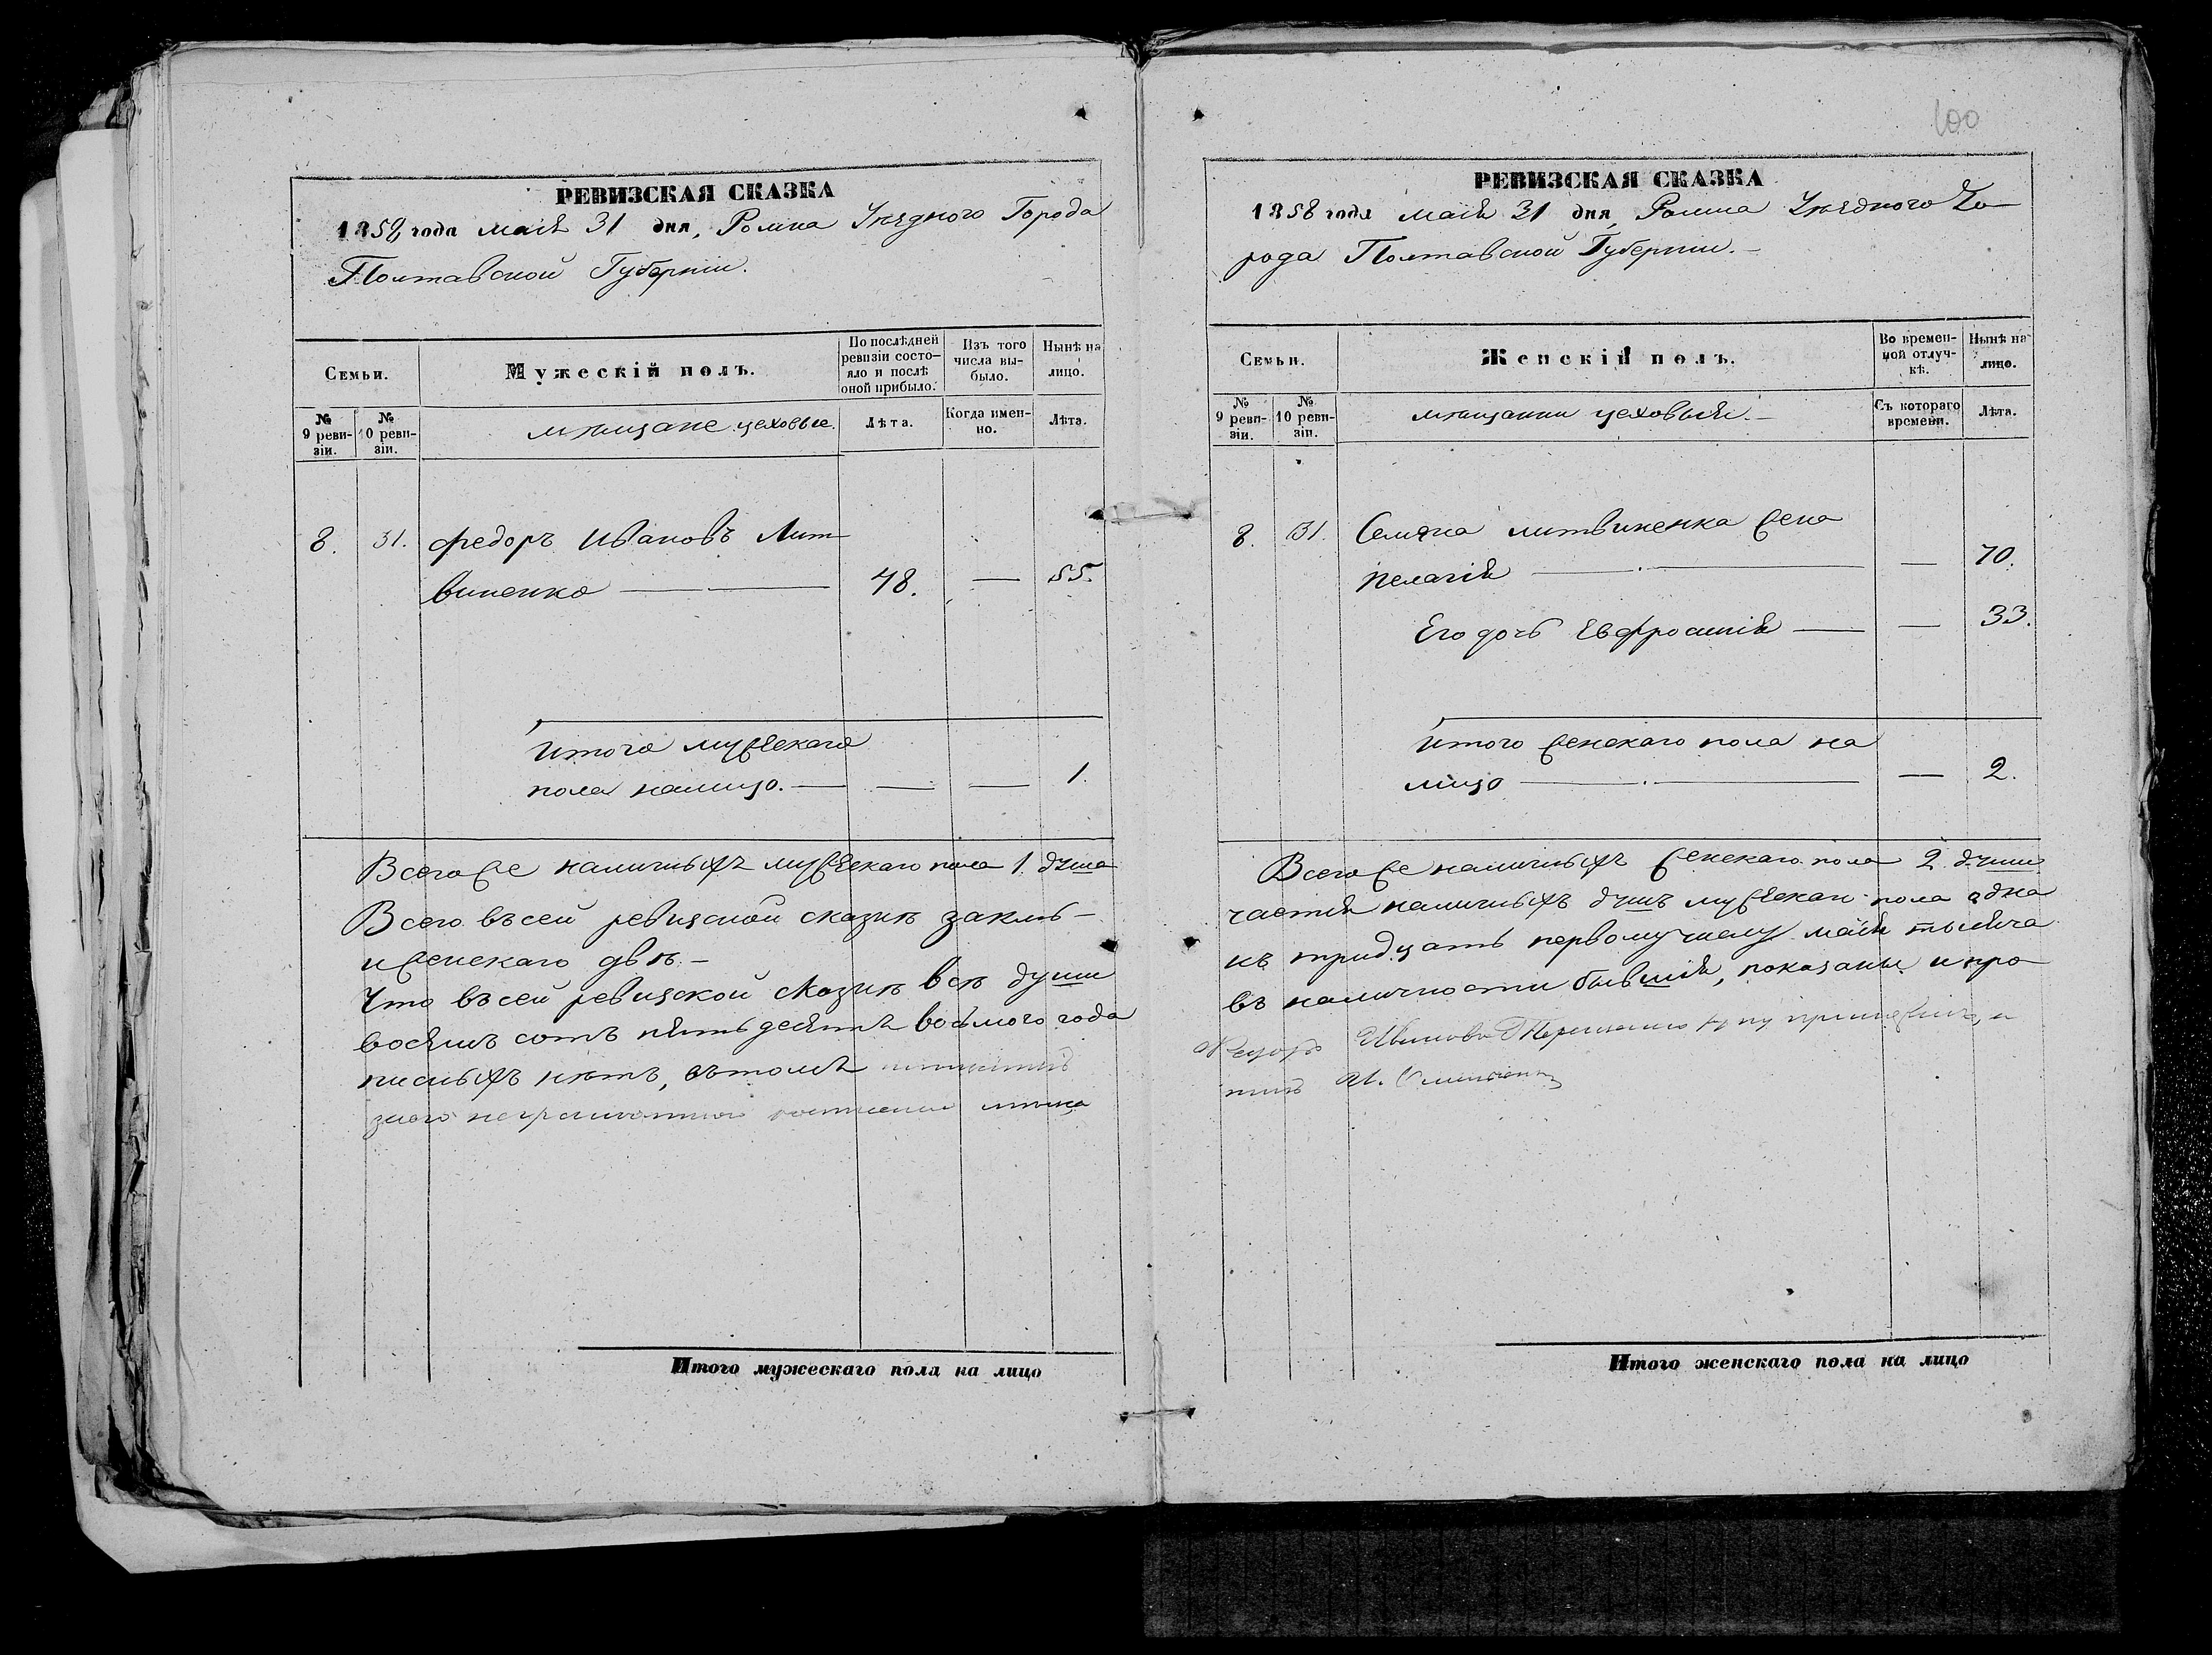 РЕВИЗСКАЯ СКАЗКА
1858 года маія 31 дня, Ромна Уѣзднаго Города
Полтавской Губерніи.
Семьи.
Мужескій полъ.
По послѣдней ревизіи состо-
яло и послѣ
оной прибыло.
Изъ того
числа вы-
было.
Нынѣ на
лицо.
№
9 реви-
зіи.
№
10 реви-
зіи.
мѣщане цеховые.
Лѣта.
Когда имен-
но.
Лѣта.
8. 31. Федоръ Ивановъ Лит-
виненко — 48. — 55.
Итого мужескаго
пола налицо. — — — 1.
Всегоже наличныхъ мужескаго пола 1. душа
Всего въсей ревизской сказкѣ заклю-
и женскаго двѣ. —
Что въсей ревизской сказкѣ всѣ души
восемь сотъ пятьдесятъ восьмого года
писныхъ нѣтъ, втомъ
Итого мужескаго пола на лицо
100
РЕВИЗСКАЯ СКАЗКА
1858 года маія 31 дня, Ромна Уѣзднаго Го-
рода Полтавской Губерніи. —
Семьи.
Женскій полъ.
Во времен-
ной отлуч-
кѣ.
Нынѣ на
лицо.
№
9 реви-
зіи.
№
10 реви-
зіи.
мѣщанки цеховыя. —
Съ котораго
времени.
Лѣта.
8. 31. Семена литвиненка жена
пелагія — — 70.
Его дочь Евфросинія — — 33.
Итого женскаго пола на
лицо — — 2.
Всегоже наличныхъ женскаго пола 2. души
чается наличныхъ душъ мужескаго пола одна
къ тридцать первому числу маія тысяча
въ наличности бывшія, показаны и про-
Итого женскаго пола на лицо